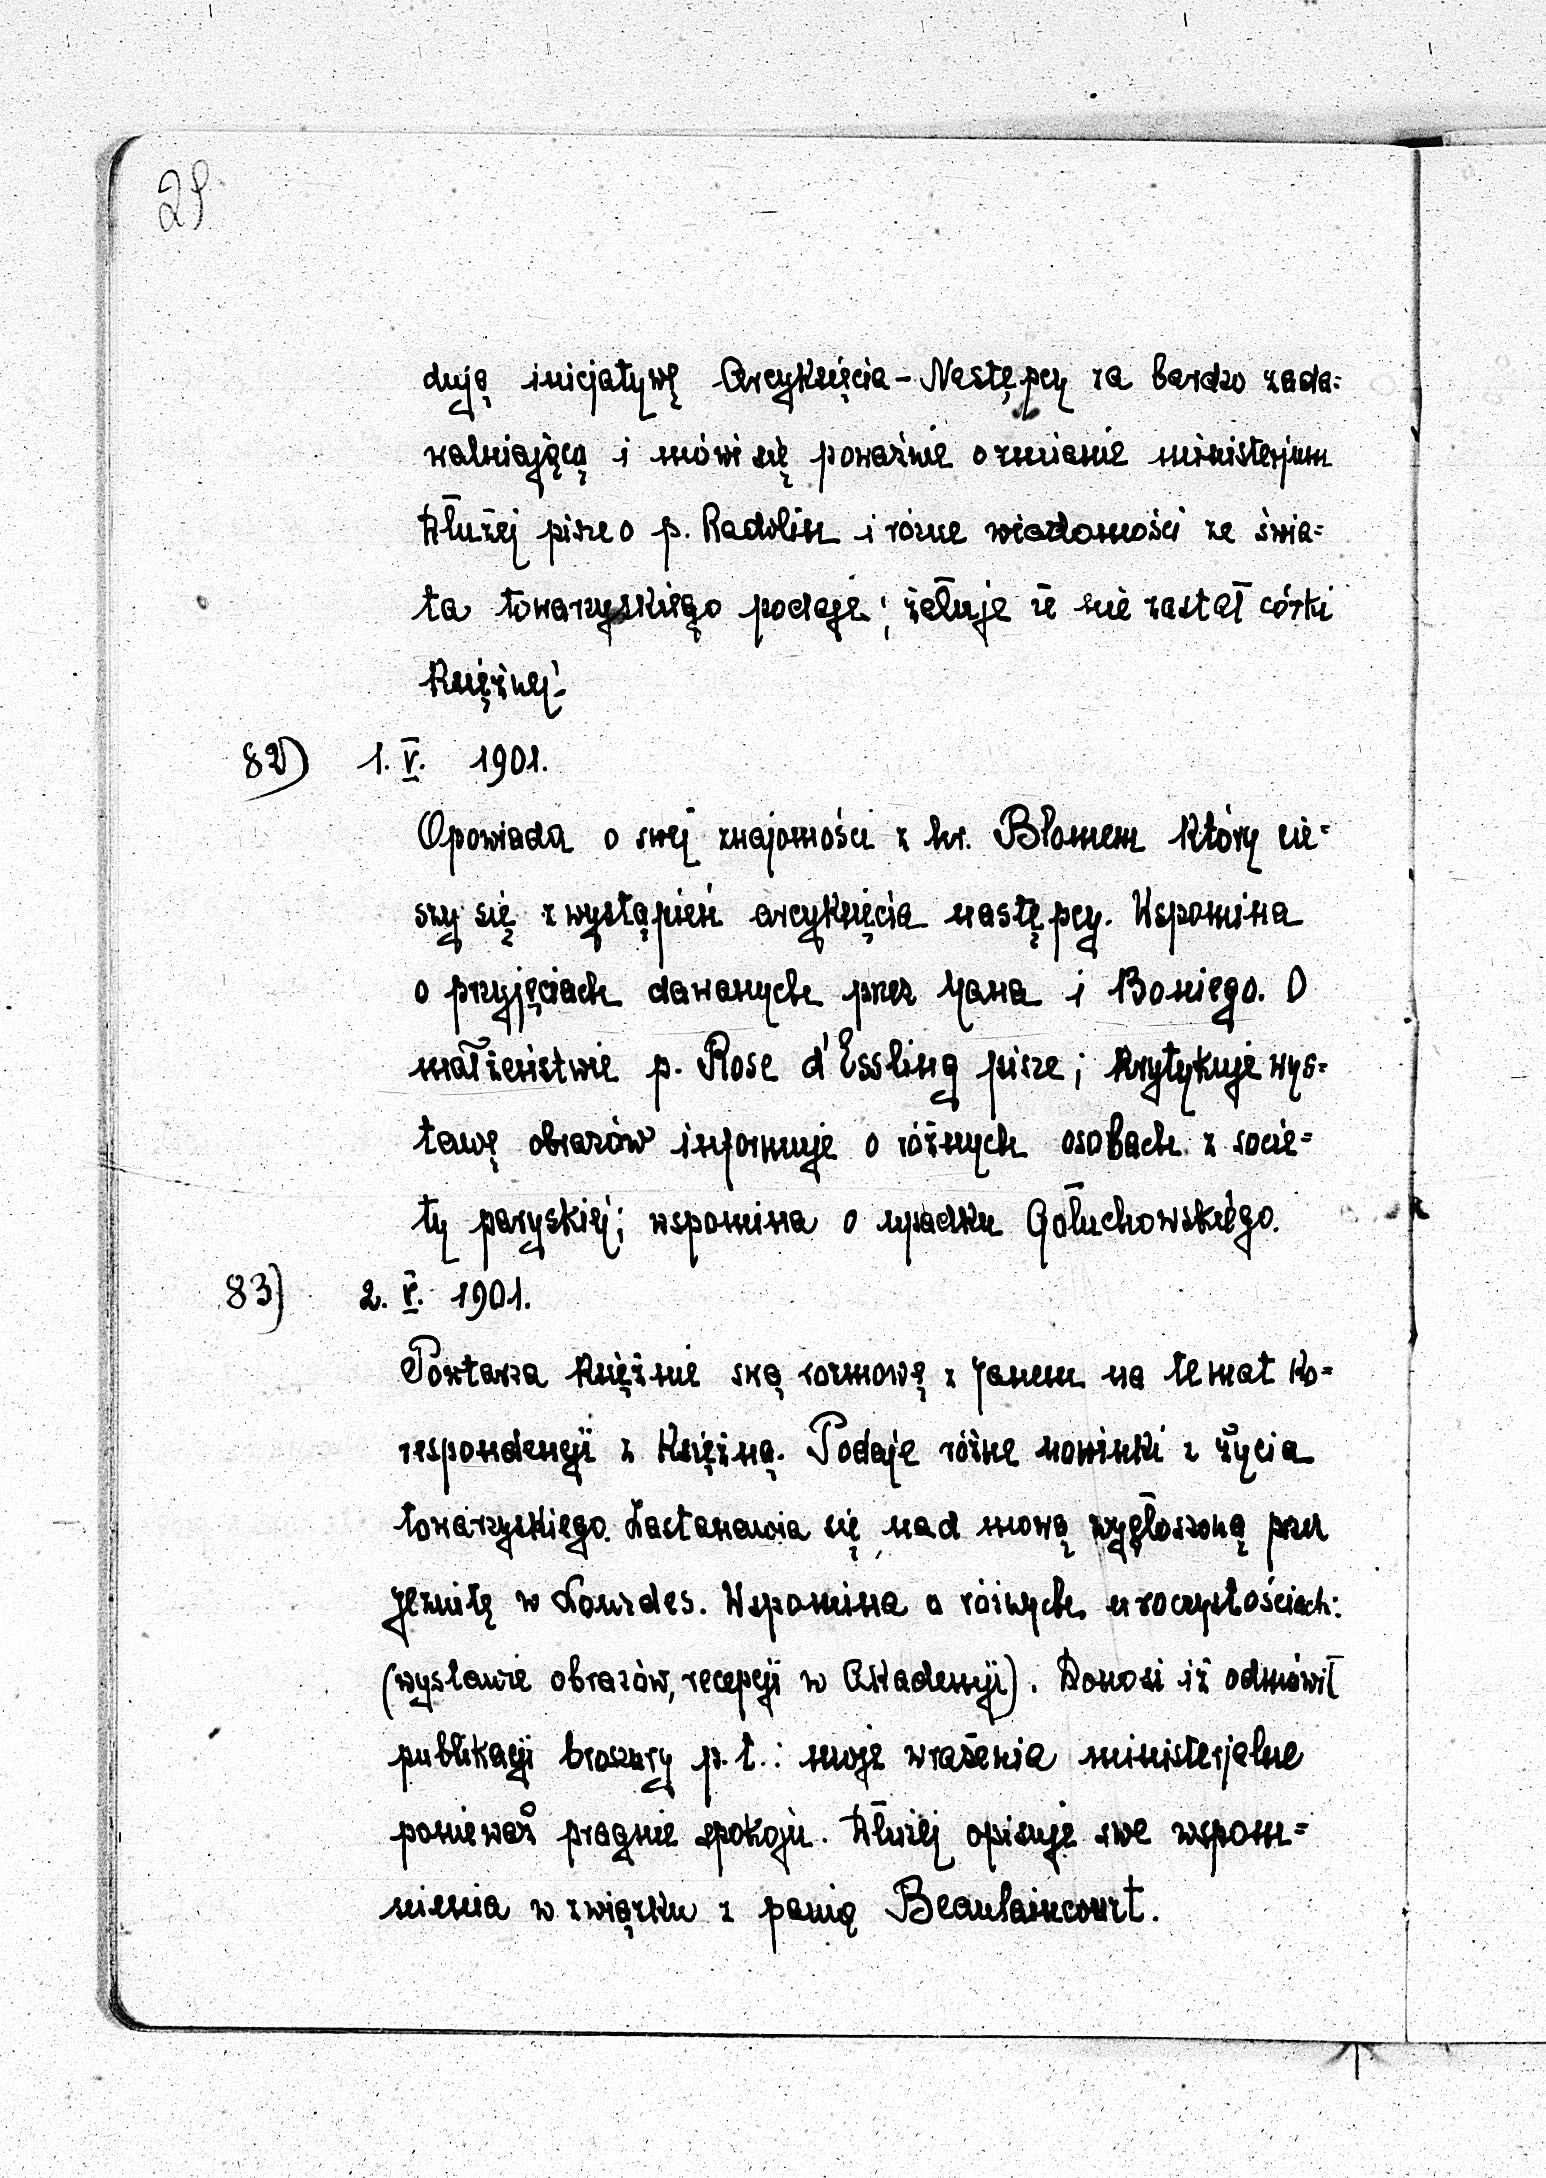 29
dują inicjatywę Arcyksięcia - Następcy za bardzo zada=
walniającą i mówi się poważnie o zmianie ministerjum
Dłużej pisze o p. Radolin i różne wiadomości ze świa=
ta towarzyskiego podaje; żałuje że nie zastał córki
Księżnej.
82) 1. V. 1901.
Opowiada o swej znajomości z hr. Błomem który cie=
szy się z wystąpień arcyksięcia następcy. Wspomina
o przyjęciach dawanych przez Jana i Boniego. O
małżeństwie p. Rose d'Essling pisze; krytykuje wys=
tawę obrazów informuje o różnych osobach z socie=
ty paryskiej; wspomina o upadku Gołuchowskiego.
83) 2. V. 1901.
Powtarza księżnie swą rozmowę z Janem na temat ko=
respondencji z Księżną. Podaje różne nowinki z życia
towarzyskiego. Zastanawia się nad mową wygłoszoną przez
jezuitę w Lourdes. Wspomina o różnych uroczystościach:
(wystawie obrazów, recepcji w Akademji). Donosi iż odmówił
publikacji broszury p.t.: moje wrażenia ministerjalne
ponieważ pragnie spokoju. Dłużej opisuje swe wspom=
nienia w związku z panią Beaulaincourt.